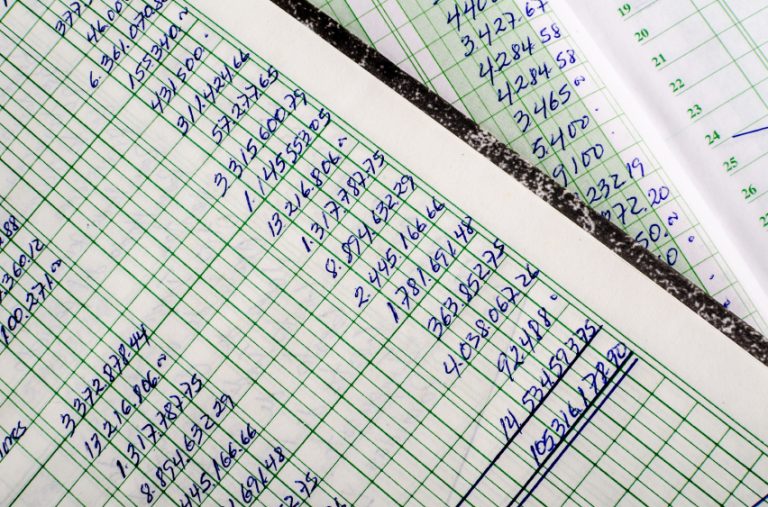 46.00
6.361.070.8
155340.~
431500.
311.424.66
57.277.65
3315.600.79
1.145553.05
13.216.806.~
1.317.787.75
8.894.632.29
2.445.166.66
1781.691.48
363.852.75
4.038.067.26
92.488.
14.534.593.75
105316.178.90
360.12
100.271.~
3372.878.44
13.216.806.~
1.317.787.75
8.894.632.29
445.166.66
691.48
440
3.427.67
4284.58
4284.58
3465~.
5.400.
9100.
232.19
272.20
50.~
19
20
21
22
23
24
25
26